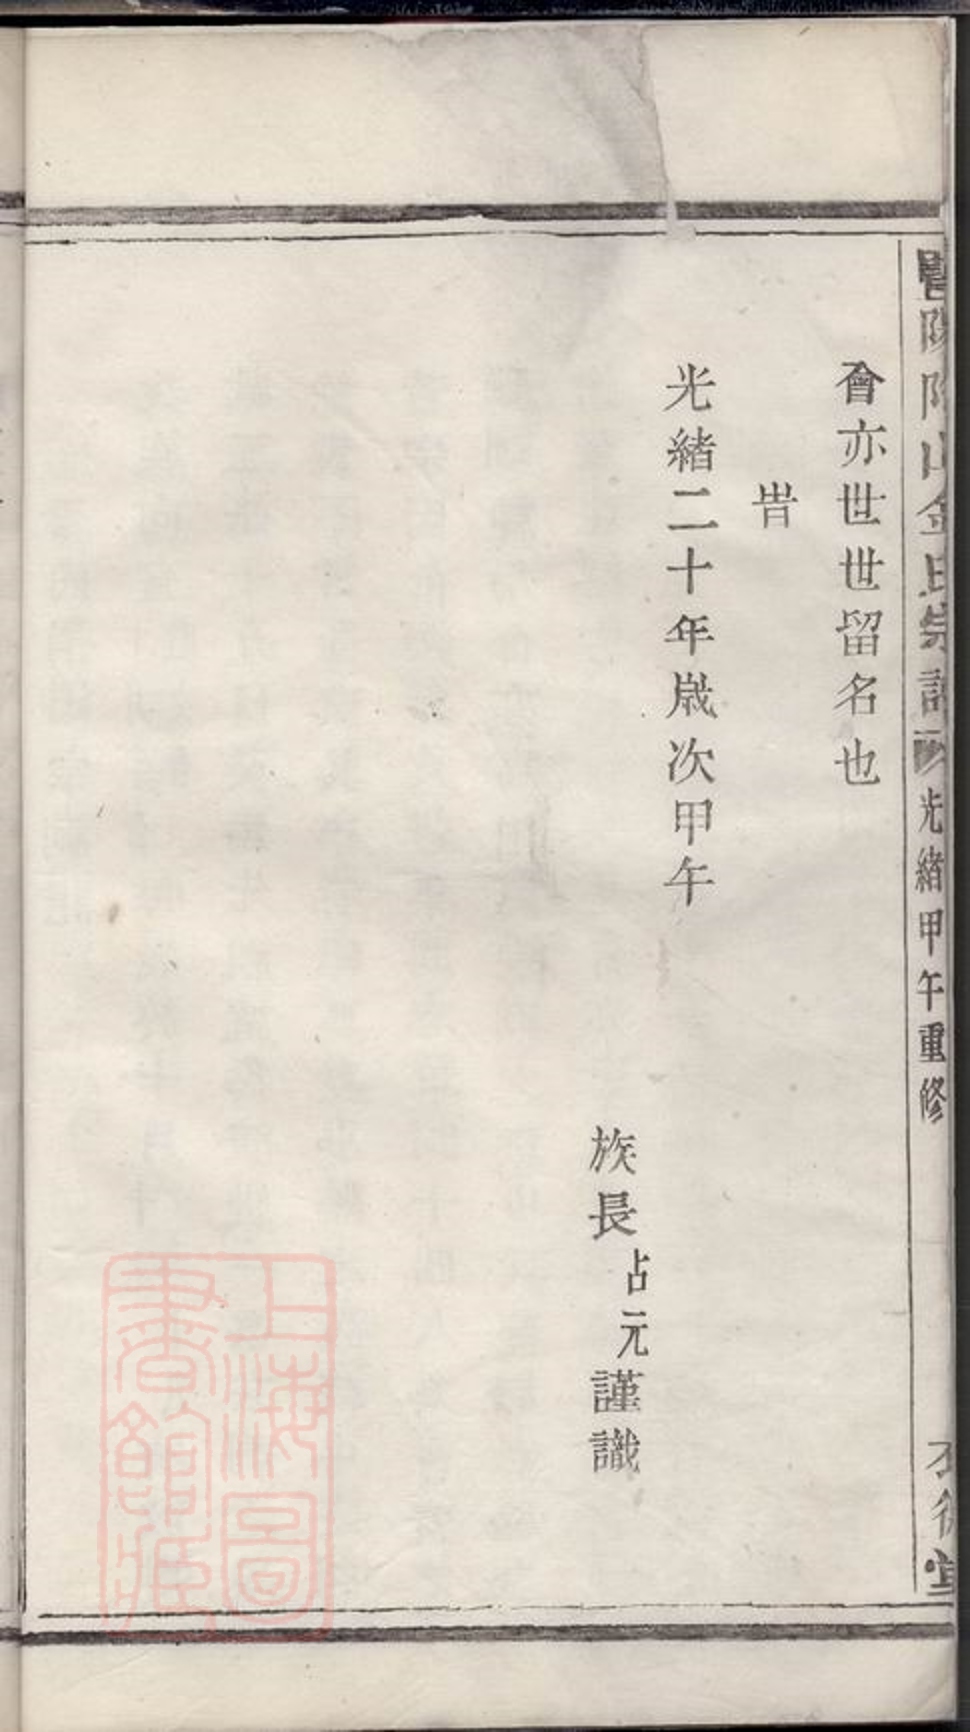 暨陽陶山金氏宗譜 光緒甲午重修
會亦世世留名也
旹
光緒二十年歲次甲午
族長占元謹識
上海圖書館藏